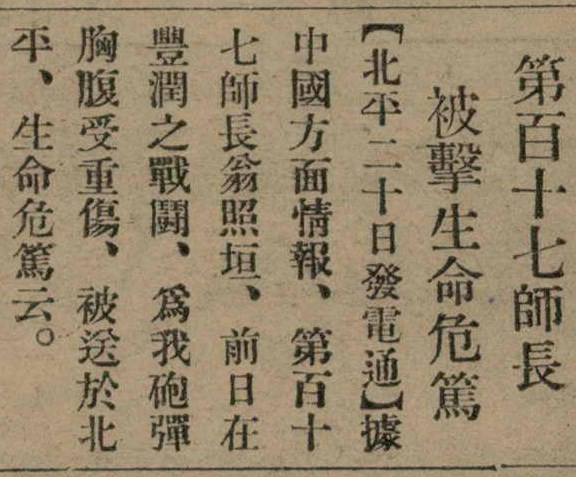 第百十七師長
被擊生命危篤
【北平二十日發電通】據
中國方面情報、第百十
七師長翁照垣、前日在
豐潤之戰鬪、爲我砲彈
胸腹受重傷、被送於北
平、生命危篤云。